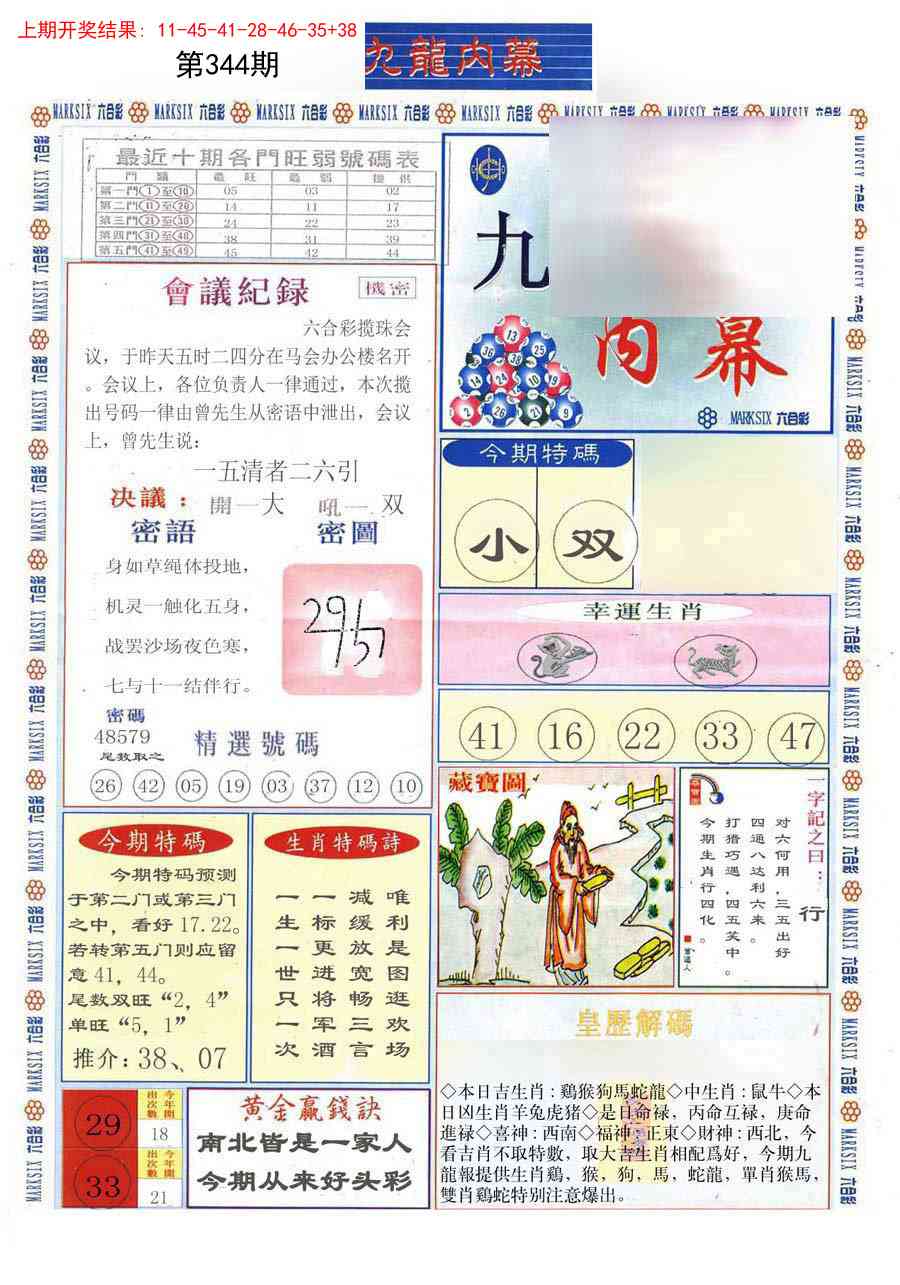 上期开奖结果：11-45-41-28-46-35+38
第344期
九龍内幕
MARKSIX 六合彩
最近十期各門旺弱號碼表
門 類 最 旺 最 弱 提 供
第一門①至⑩ 05 03 02
第二門⑪至⑳ 14 11 17
第三門㉑至㉚ 24 22 23
第四門㉛至㊵ 38 31 39
第五門㊶至㊾ 45 42 44
會議紀录
機密
六合彩揽珠会
议，于昨天五时二四分在马会办公楼名开
。会议上，各位负责人一律通过，本次揽
出号码一律由曾先生从密语中泄出，会议
上，曾先生说：
一五清者二六引
决議：開一大 吼一双
密語 密圖
身如草绳休投地，
机灵一触化五身，
战罢沙场夜色寒，
七与十一结伴行。
密碼
48579
尾数取之
精選號碼
26 42 05 19 03 37 12 10
九
内幕
13
36 38 25
14 24 10 19
2 26 21 9
MARKSIX 六合彩
今期特碼
小 双
幸運生肖
41 16 22 33 47
藏寶圖
一字記之曰：行
对六何用，三五出好
四通八达利六来。
打猎巧遇，四五芙中。
今期生肖行四化。
今期特碼
今期特码预测
于第二门或第三门
之中，看好 17.22。
若转第五门则应留
意 41，44。
尾数双旺“2，4”
单旺“5，1”
推介：38、07
生肖特碼詩
唯利是图逛欢场
减缓放宽畅三言
一标更进将军酒
一生一世只一次
皇歷解碼
◇本日吉生肖：鷄猴狗馬蛇龍◇中生肖：鼠牛◇本
日凶生肖羊兔虎猪◇是日命禄，丙命互禄，庚命
進禄◇喜神：西南◇福神：正東◇財神：西北，今
看吉肖不取特數，取大吉生肖相配爲好，今期九
龍報提供生肖鷄，猴，狗，馬，蛇龍，單肖猴馬，
雙肖鷄蛇特别注意爆出。
29
今年開出次數
18
33
今年開出次數
21
黄金贏錢訣
南北皆是一家人
今期从来好头彩